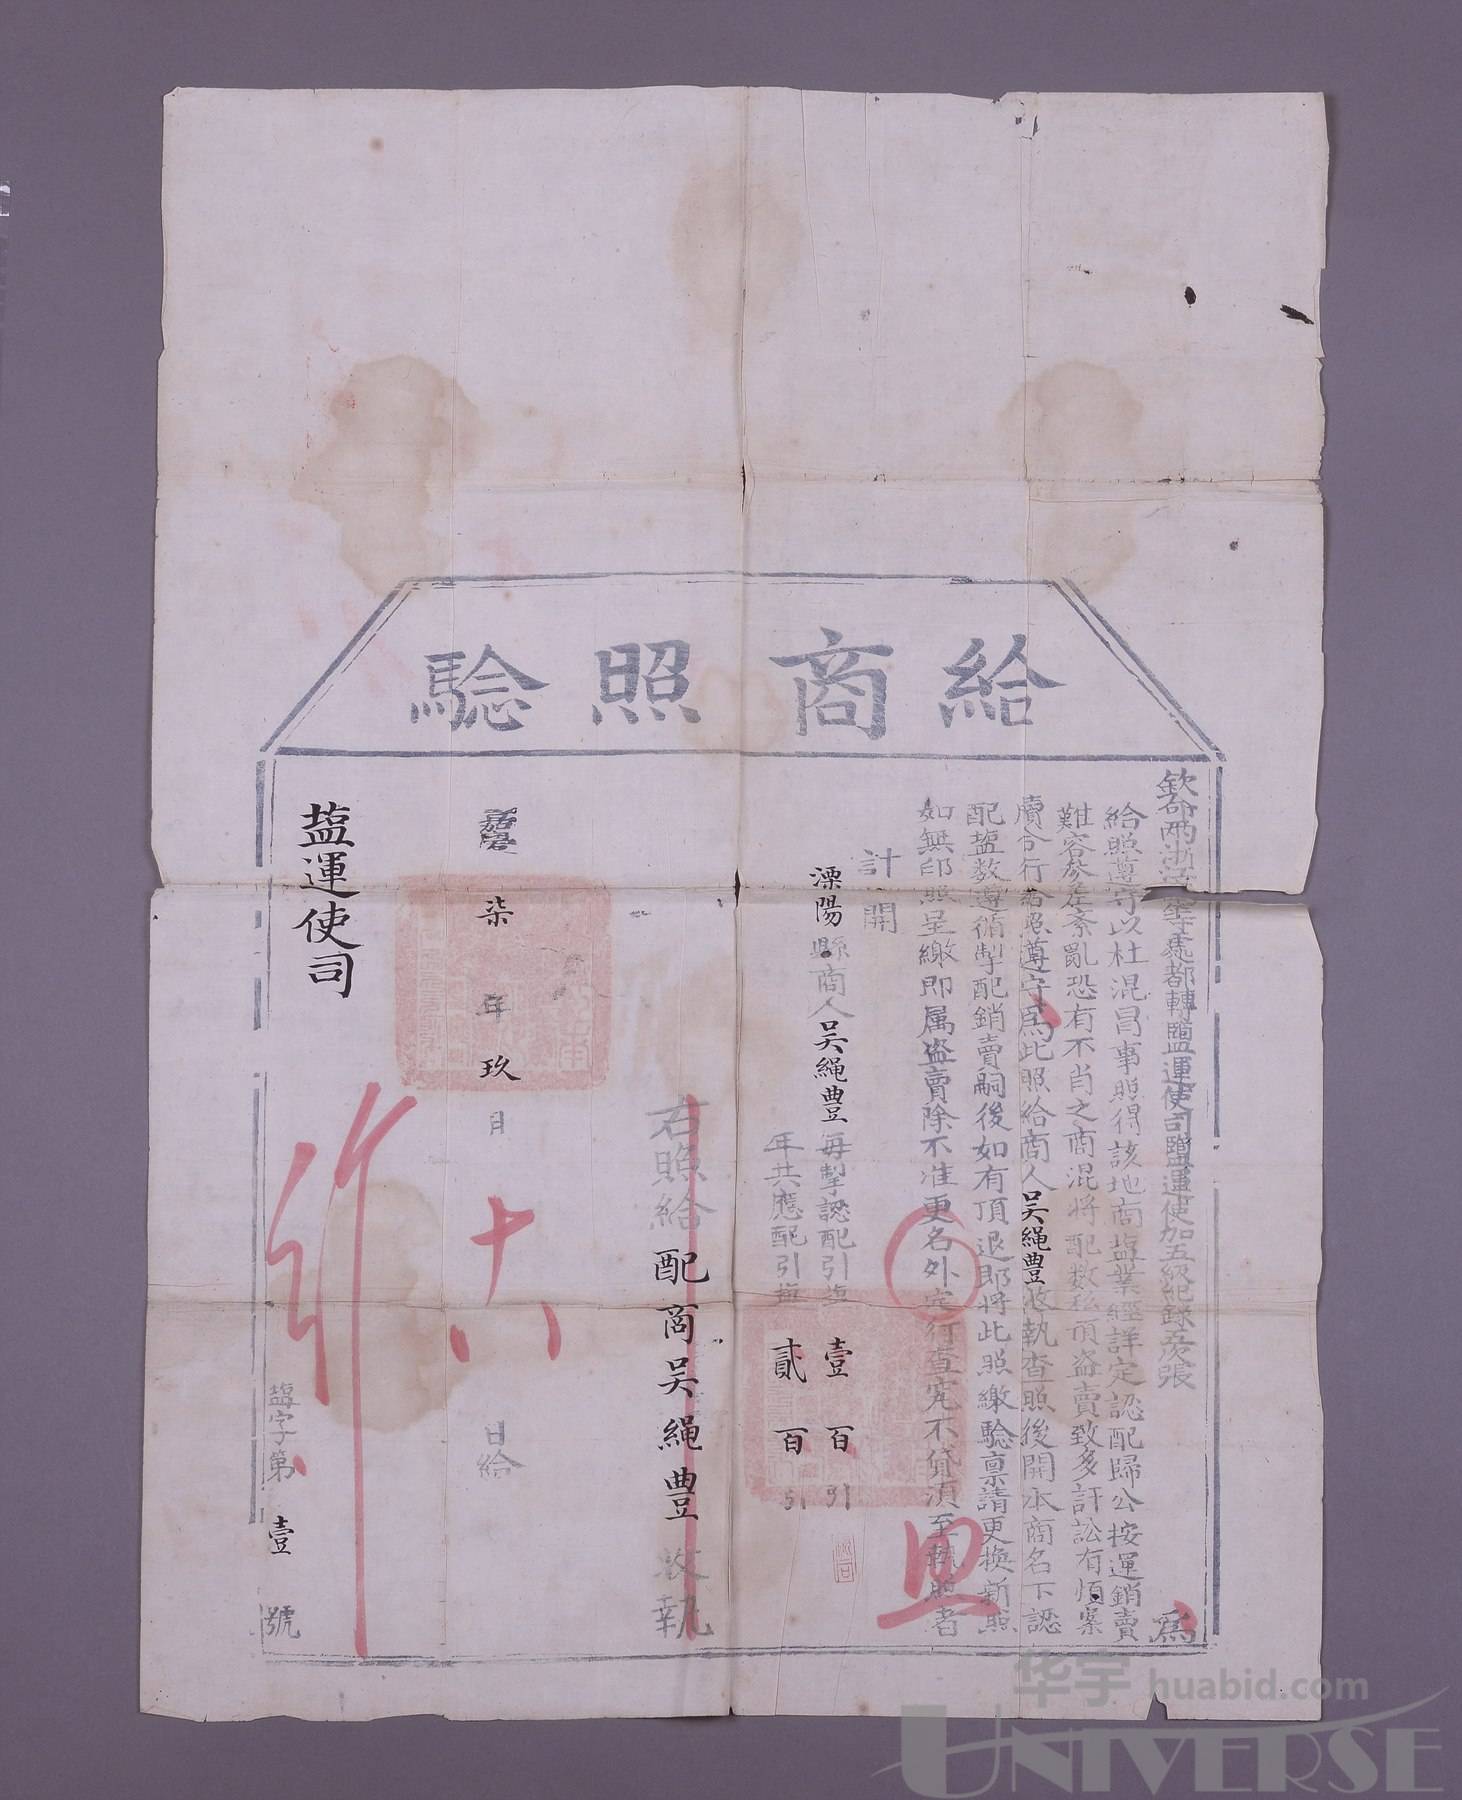 給商照驗
欽命兩浙江等處都轉鹽運使司鹽運使加五級紀錄五次張 爲
給照遵守以杜混冒事照得該地商塩業經詳定認配歸公按運銷賣
難容參差紊亂恐有不肖之商混將配數私頂盜賣致多訐訟有煩案
牘合行給照遵守爲此照給商人吳繩豐收執查照後開本商名下認
配塩数遵循掣配銷賣嗣後如有頂退即將此照繳驗禀請更換新照
如無印照呈繳即属盜賣除不准更名外定行查究不貸湏至執照者
計開
溧陽縣商人吳繩豐每掣認配引塩壹百引
年共應配引塩貳百引
照
右照給配商吳繩豐收執
嘉慶柒年玖月十八日給
塩運使司
塩字第壹號
华宇 huabid.com
UNIVERSE